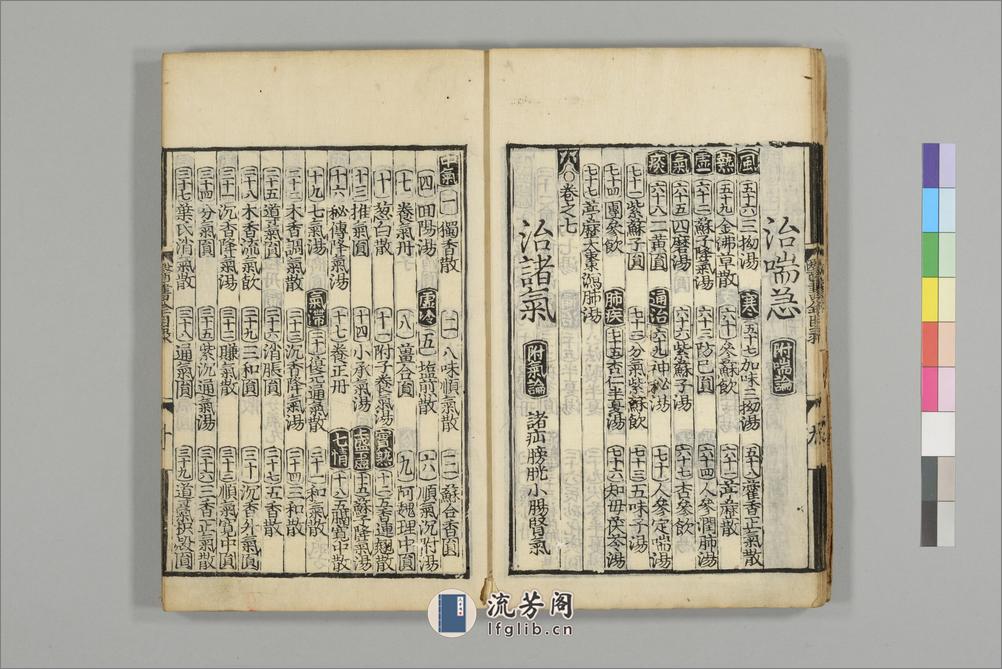 治喘急 附喘論
風 五十六三拗湯 寒 五十七加味三拗湯 五十八藿香正氣散
熱 五十九金沸草散 六十參蘇飲 六十一葶藶散
虛 六十二蘇子降氣湯 六十三防己圓 六十四人參潤肺湯
氣 六十五四磨湯 六十六紫蘇子湯 六十七杏參飲
痰 六十八一黃圓 通治 六十九神秘湯 七十人參定喘湯
七十一紫蘇子圓 七十二分氣紫蘇飲 七十三五味子湯
七十四團參飲 肺疾 七十五杏仁半夏湯 七十六知母茯苓湯
七十七葶藶大棗瀉肺湯
八〇卷之七
治諸氣 附氣論 諸疝膀胱小腸腎氣
中氣 一獨香散 二八味順氣散 三蘇合香圓
四回陽湯 虛冷 五塩煎散 六順氣沉附湯
七養氣丹 八薑合圓 九阿魏理中圓
十葱白散 十一附子養氣湯 實熱 十二五香連翹湯
十三推氣圓 十四小承氣湯 上盛下虛 十五蘇子降氣湯
十六秘傳降氣湯 十七養正丹 七情 十八五膈寬中散
十九七氣湯 氣滯 二十復元通氣散 二十一和氣散
二十二木香調氣散 二十三沉香降氣湯 二十四三和散
二十五導氣圓 二十六消脹圓 二十七五香散
二十八木香流氣飲 二十九三和圓 三十沉香升氣圓
三十一沉香降氣湯 三十二賺氣散 三十三順氣寬中圓
三十四分氣圓 三十五紫沉通氣湯 三十六三香正氣散
三十七葉氏消氣散 三十八通氣圓 三十九道
流芳阁
lfglib.cn